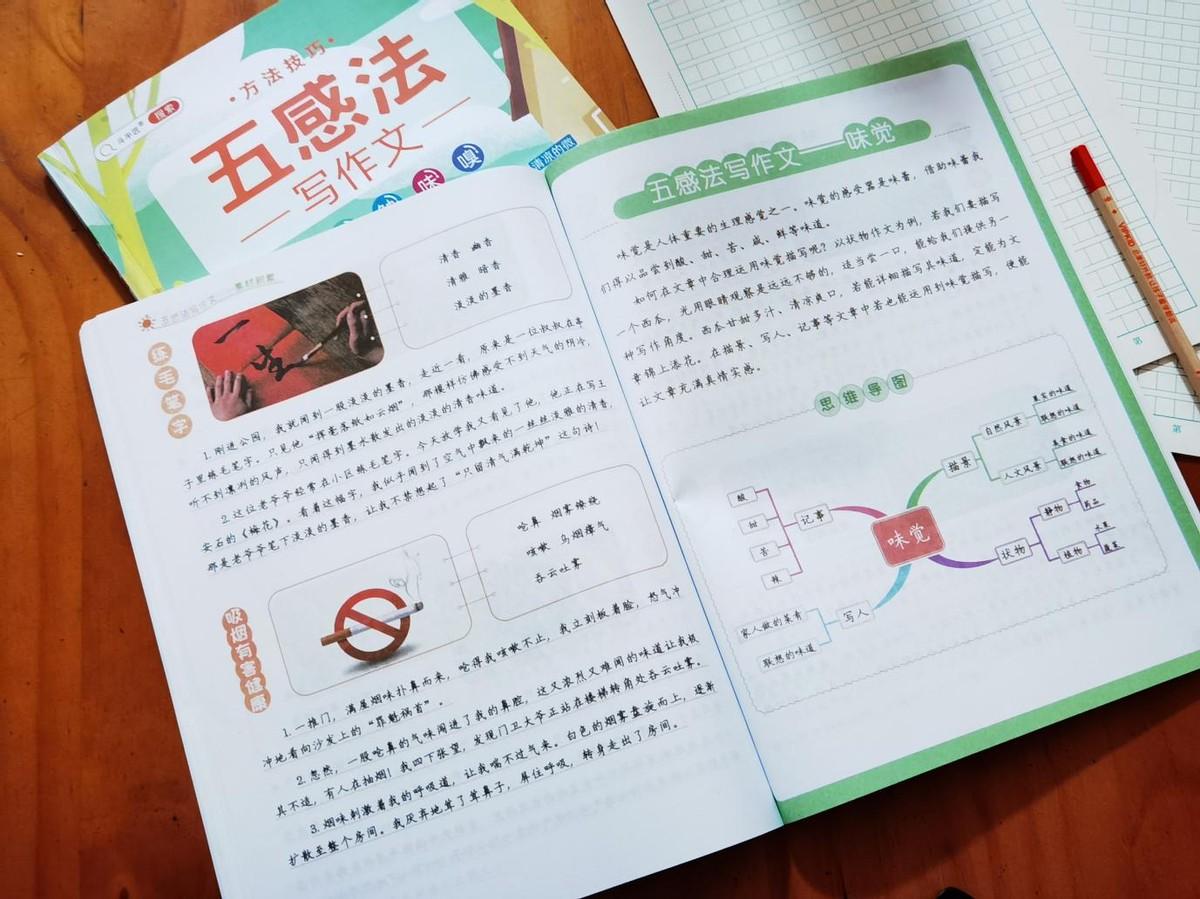 斗半匠
搜索
·方法技巧·
五感法
写作文
味
嗅
清凉的微
五感法写作文——素材积累
练毛笔字
一生
清香 幽香
清雅 暗香
淡淡的墨香
1.刚进公园,我就闻到一股淡淡的墨香,走近一看,原来是一位叔叔在亭
子里练毛笔字。只见他“挥毫落纸如云烟”,那模样仿佛感受不到天气的阴冷,
听不到凛冽的风声,只闻得到墨水散发出的淡淡的清香味道。
2.这位老爷爷经常在小区练毛笔字。今天放学我又看见了他,他正在写王
安石的《梅花》。看着这幅字,我似乎闻到了空气中飘来的一丝丝淡雅的清香,
那是老爷爷笔下淡淡的墨香,让我不禁想起了“只留清气满乾坤”这句诗!
吸烟有害健康
呛鼻 烟雾缭绕
咳嗽 乌烟瘴气
吞云吐雾
1.一推门,满屋烟味扑鼻而来,呛得我咳嗽不止,我立刻板着脸,怒气冲
冲地看向沙发上的“罪魁祸首”。
2.忽然,一股呛鼻的气味闯进了我的鼻腔,这又浓烈又难闻的味道让我极
其不适,有人在抽烟!我四下张望,发现门卫大爷正站在楼梯转角处吞云吐雾。
3.烟味刺激着我的呼吸道,让我喘不过气来。白色的烟雾盘旋而上,逐渐
扩散至整个房间。我厌弃地耸了耸鼻子,屏住呼吸,转身走出了房间。
五感法写作文——味觉
味觉是人体重要的生理感觉之一。味觉的感受器是味蕾,借助味蕾我
们得以品尝到酸、甜、苦、咸、鲜等味道。
如何在文章中合理运用味觉描写呢?以状物作文为例,若我们要描写
一个西瓜,光用眼睛观察是远远不够的,适当尝一口,能给我们提供另一
种写作角度。西瓜甘甜多汁、清凉爽口,若能详细描写其味道,定能为文
章锦上添花。在描景、写人、记事等文章中若也能运用到味觉描写,便能
让文章充满真情实感。
思维导图
味觉
记事
酸
甜
苦
辣
写人
家人做的菜肴
联想的味道
描景
自然风景
果实的味道
联想的味道
人文风景
美食的味道
联想的味道
状物
静物
食物
药品
植物
水果
蔬菜
第
第